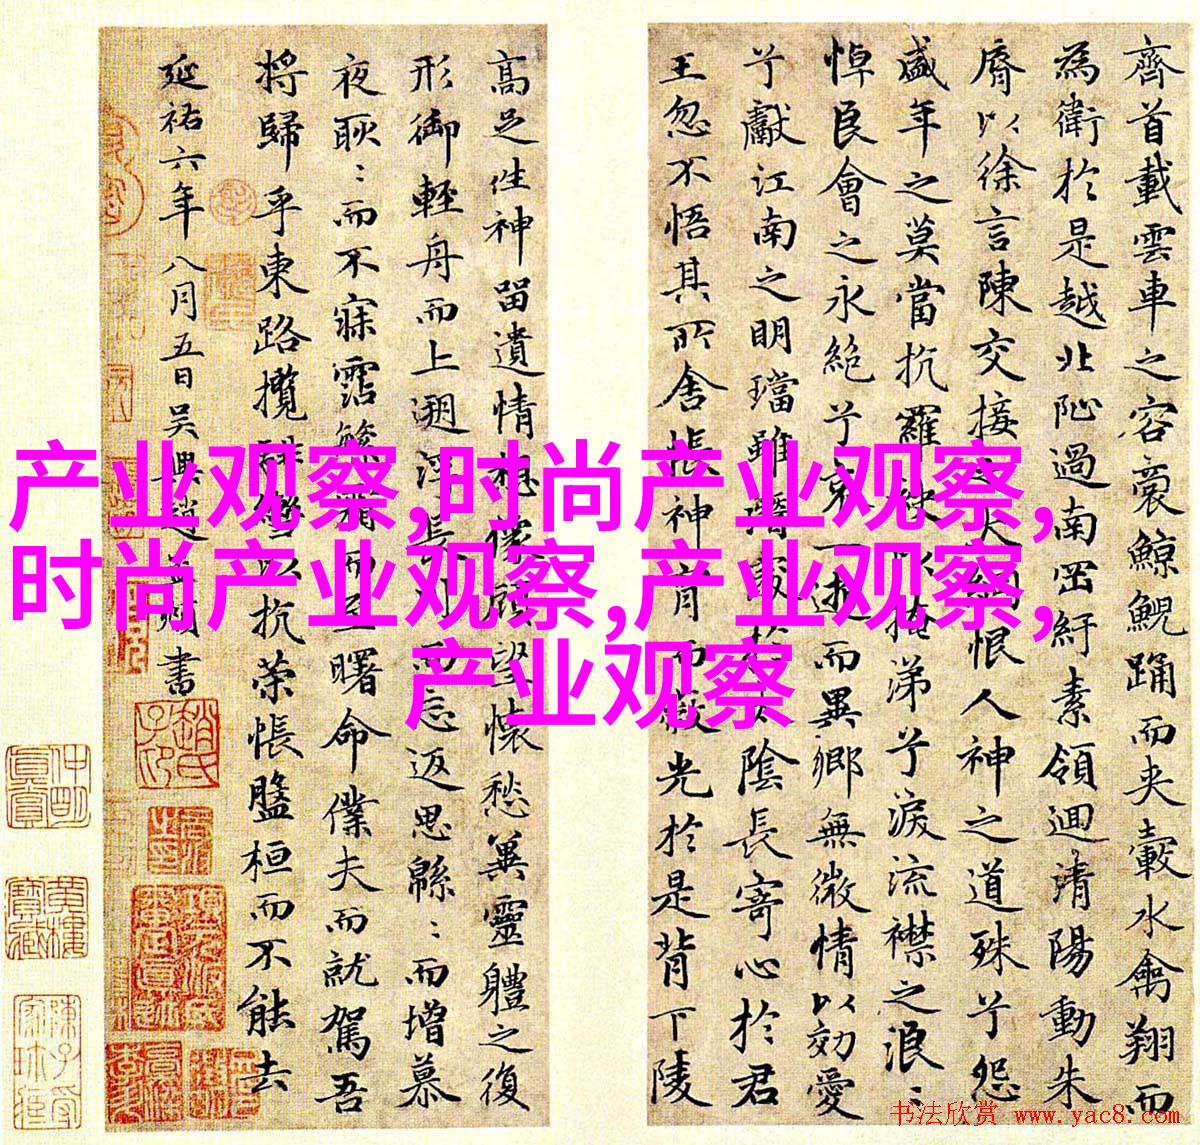 齊首載雲車之容裔鯨鯢踊而夾轂水禽翔而
為衛於是越北沚過南岡紆素領迴清陽動朱
脣以徐言陳交接之大綱恨人神之道殊兮怨
盛年之莫當抗羅袂以掩涕兮淚流襟之浪〻
悼良會之永絕兮哀一逝而異鄉無微情以効愛
兮獻江南之明璫雖潛處於太陰長寄心於君
王忽不悟其所舍悵神宵而蔽光於是背下陵
高足往神留遺情想像顧望懷愁冀靈體之復
形御輕舟而上遡浮長川而忘返思緜〻而增慕
夜耿〻而不寐霑繁霜而至曙命僕夫而就駕吾
將歸乎東路攬騑轡以抗策悵盤桓而不能去
延祐六年八月五日吳興趙孟頫書
产业观察,时尚产业观察,
时尚产业观察,产业观察,
产业观察
书法欣赏 www.yac8.com